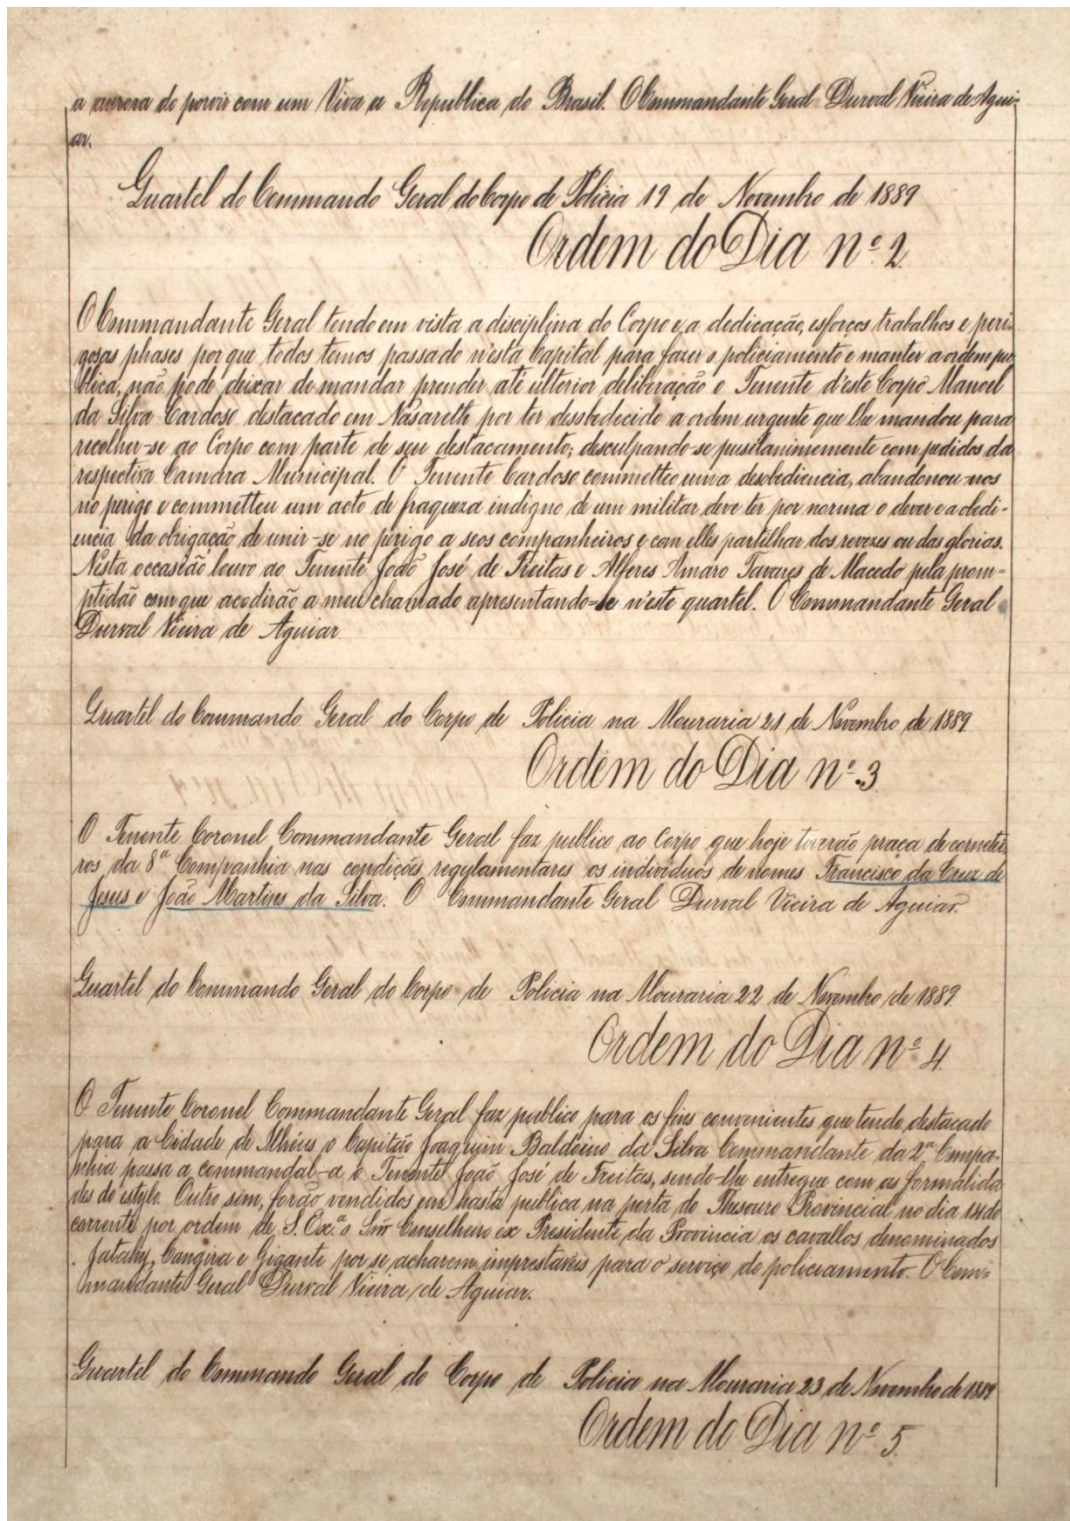 a aurora do porvir com um Viva a Republica do Brasil. O Commandante Geral Durval Vieira de Agui-
ar.
Quartel do Commando Geral do Corpo de Policia 19 de Novembro de 1889
Ordem do Dia nº 2
O Commandante Geral tendo em vista a disciplina do Corpo e a dedicação, esforços trabalhos e peri-
gosas phases por que todos temos passado n'esta Capital para fazer o policiamento e manter a ordem pu-
blica, não pode deixar de mandar prender até ulterior deliberação o Tenente d'este Corpo Manoel
da Silva Cardoso destacado em Nasareth por ter desobedecido a ordem urgente que lhe mandou para
recolher-se ao Corpo com parte de seu destacamento, desculpando-se pusilanimemente com pedidos da
respectiva Camara Municipal. O Tenente Cardoso commetteo uma desobediencia, abandonou-nos
no perigo e commetteu um acto de fraqueza indigno de um militar deve ter por norma o dever e a obedi-
encia da obrigação de unir-se no perigo a seos companheiros e com elles partilhar dos revezes ou das glorias.
Nesta occasião louvo ao Tenente João José de Freitas e Alferes Amaro Tavares de Macedo pela prom-
ptidão com que acodirão a meu chamado apresentando-se n'este quartel. O Commandante Geral
Durval Vieira de Aguiar
Quartel do Commando Geral do Corpo de Policia na Mouraria 21 de Novembro de 1889
Ordem do Dia nº 3
O Tenente Coronel Commandante Geral faz publico ao Corpo que hoje tiverão praça de cornetei
ros da 8ª Companhia nas condições regulamentares os individuos de nomes Francisco da Cruz de
Jesus e João Martins da Silva. O Commandante Geral Durval Vieira de Aguiar.
Quartel do Commando Geral do Corpo de Policia na Mouraria 22 de Novembro de 1889
Ordem do Dia nº 4
O Tenente Coronel Commandante Geral faz publico para os fins convenientes que tendo destacado
para a Cidade de Ilhéus o Capitão Joaquim Baldoino da Silva Commandante da 2ª Compa-
nhia passa a commandal-a o Tenente João José de Freitas, sendo-lhe entregue com as formalida
des do estylo. Outro sim, forão vendidos em hasta publica na porta do Thesouro Provincial no dia 14 do
corrente por ordem de S. Exª o Snr Conselheiro ex Presidente da Provincia os cavallos denominados
Jatahy, Cangira e Gigante por se acharem imprestaveis para o serviço do policiamento. O Com-
mandante Geral Durval Vieira de Aguiar.
Quartel do Commando Geral do Corpo de Policia na Mouraria 23 de Novembro de 1889
Ordem do Dia nº 5